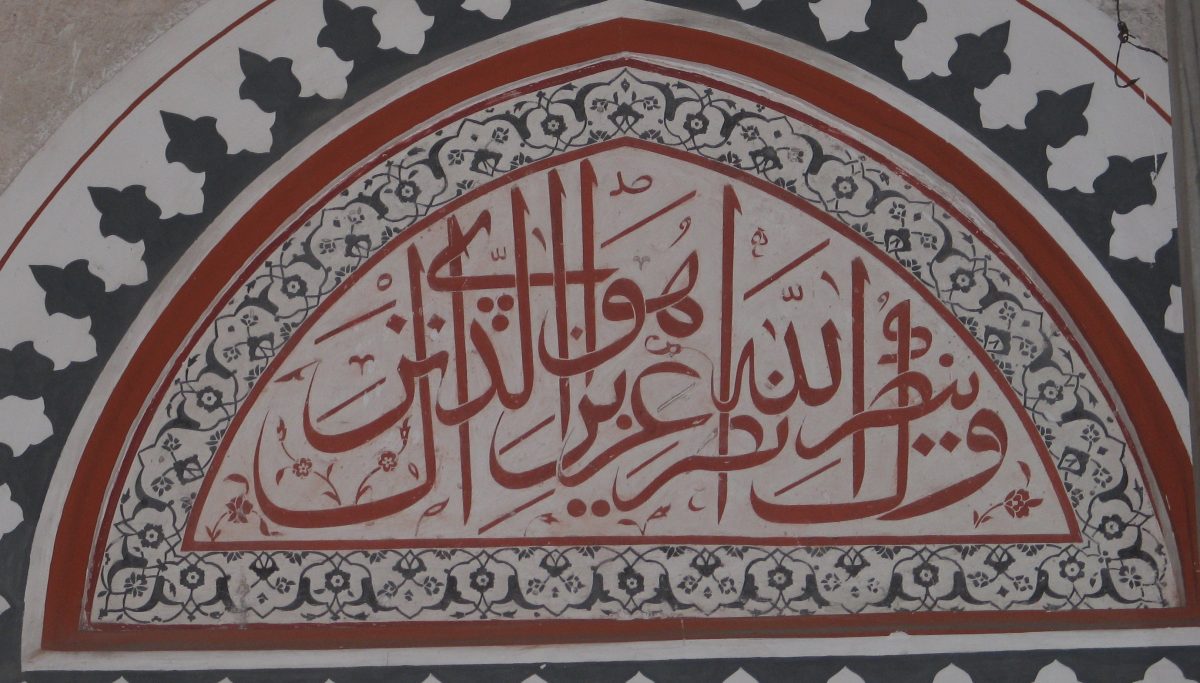 وينصرك الله نصرا عزيزا هو الذي انزل